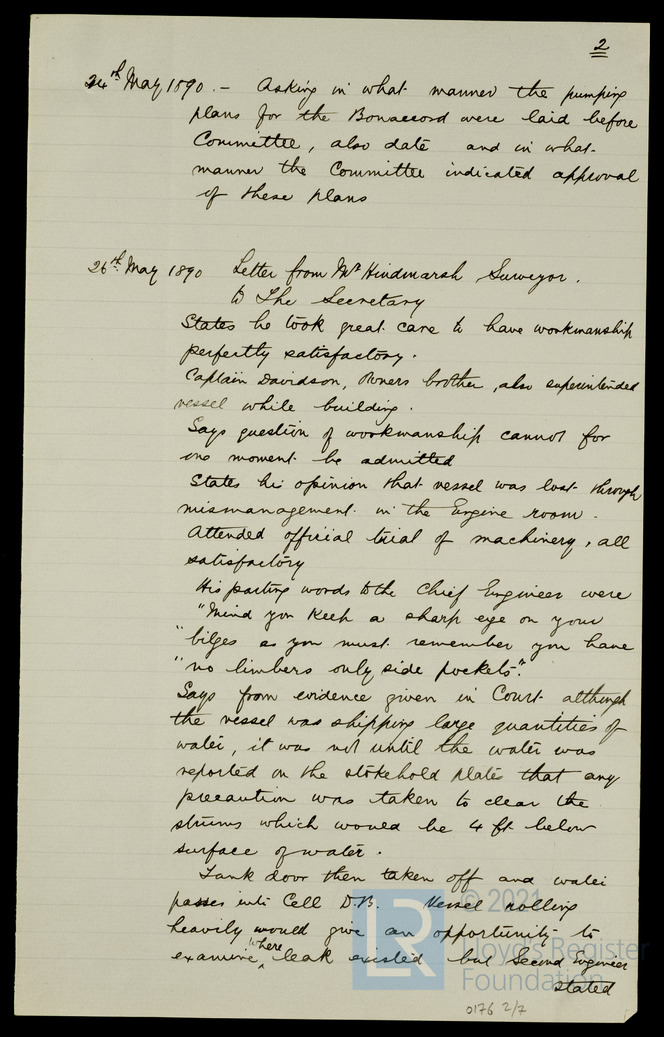 2
24th May 1890. - Asking in what manner the pumping
plans for the Bonaccord were laid before
Committee, also date and in what
manner the Committee indicated approval
of these plans
26th May 1890 Letter from Mr Hindmarsh Surveyor.
to The Secretary
States he took great care to have workmanship
perfectly satisfactory.
Captain Davidson, Owners brother, also superintended
vessel while building.
Says question of workmanship cannot for
one moment be admitted
States his opinion that vessel was lost through
mismanagement in the Engine room.
Attended official trial of machinery, all
satisfactory
His parting words to the Chief Engineer were
"Mind you keep a sharp eye on your
"bilges as you must remember you have
"no limbers only side pockets".
Says from evidence given in Court although
the vessel was shipping large quantities of
water, it was not until the water was
reported on the stokehold plates that any
precaution was taken to clear the
strums which would be 4 ft below
surface of water.
Tank door then taken off and water
passes into Cell D.B. Vessel rolling
heavily would give an opportunity to
examine where leak existed but Second Engineer
stated
LR © 2021
Lloyd's Register
Foundation
0176 2/7